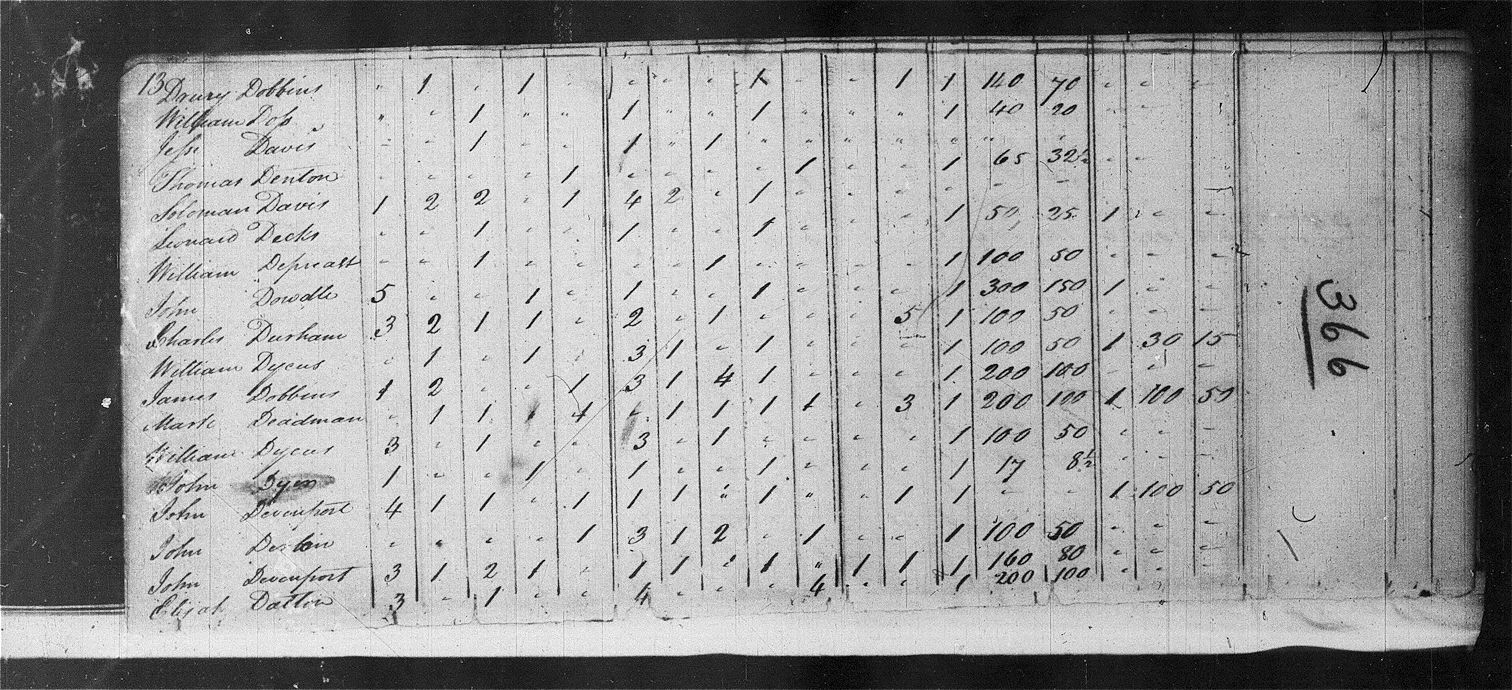 13 Drury Dobbins " 1 " 1 - - - - 1 - - 1 1 140 70 - - -
William Dos " - 1 " " 1 " - 1 " " " 1 40 20 - - -
Jesse Davis - - 1 - - 1 " 1 " " " " " " "
Thomas Denton - - - - 1 - - - - 1 - - 1 65 32½ - -
Soloman Davis 1 2 2 - 1 4 2 - 1 - - - - - -
Leonard Decks - - 1 - - 1 - - 1 - - - 1 50 25 1 - -
William Depreast - - 1 - - - - 1 - - - - 1 100 50 - - -
John Dowdle 5 - - 1 - 1 - - 1 - - - 1 300 150 1 - -
Charles Durham 3 2 1 1 - 2 - 1 - - - 5 1 100 50 - - -
William Dycus - 1 - 1 - 3 1 - 1 - - - 1 100 50 1 30 15
James Dobbins 1 2 - - 1 3 1 4 1 - - - 1 200 100 - - -
Mark Deadman - 1 1 1 - 1 1 1 1 - 3 1 200 100 1 100 50
William Dycus 3 - 1 - - 3 - 1 - - - - 1 100 50 - - -
John Dyer 1 - - 1 - 1 - - 1 - - - 1 17 8½ - - -
John Devenport 4 1 1 - 1 1 1 " 1 " - 1 1 - - 1 100 50
John - - - - 1 3 1 2 - 1 - - 1 100 50 - - -
John Devenport 3 1 2 1 - 1 1 - 1 " 1 1 1 160 80 - - -
Elijah Dalton 3 - 1 - - 4 - - - 4 - - 1 200 100 - - -
366